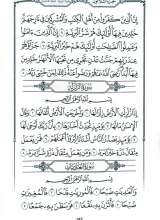 إِنَّ الَّذِينَ كَفَرُوا مِنْ أَهْلِ الْكِتَابِ وَالْمُشْرِكِينَ فِي نَارِ جَهَنَّمَ
خَالِدِينَ فِيهَا أُولَئِكَ هُمْ شَرُّ الْبَرِيَّةِ ٦ إِنَّ الَّذِينَ آمَنُوا
وَعَمِلُوا الصَّالِحَاتِ أُولَئِكَ هُمْ خَيْرُ الْبَرِيَّةِ ٧ جَزَاؤُهُمْ
عِنْدَ رَبِّهِمْ جَنَّاتُ عَدْنٍ تَجْرِي مِنْ تَحْتِهَا الْأَنْهَارُ خَالِدِينَ
فِيهَا أَبَدًا رَضِيَ اللَّهُ عَنْهُمْ وَرَضُوا عَنْهُ ذَلِكَ لِمَنْ خَشِيَ رَبَّهُ ٨
سُورَةُ الزَّلْزَلَةِ
بِسْمِ اللَّهِ الرَّحْمَنِ الرَّحِيمِ
إِذَا زُلْزِلَتِ الْأَرْضُ زِلْزَالَهَا ١ وَأَخْرَجَتِ الْأَرْضُ أَثْقَالَهَا ٢ وَقَالَ
الْإِنْسَانُ مَا لَهَا ٣ يَوْمَئِذٍ تُحَدِّثُ أَخْبَارَهَا ٤ بِأَنَّ رَبَّكَ أَوْحَى لَهَا ٥
يَوْمَئِذٍ يَصْدُرُ النَّاسُ أَشْتَاتًا لِيُرَوْا أَعْمَالَهُمْ ٦ فَمَنْ يَعْمَلْ
مِثْقَالَ ذَرَّةٍ خَيْرًا يَرَهُ ٧ وَمَنْ يَعْمَلْ مِثْقَالَ ذَرَّةٍ شَرًّا يَرَهُ ٨
سُورَةُ الْعَادِيَاتِ
بِسْمِ اللَّهِ الرَّحْمَنِ الرَّحِيمِ
وَالْعَادِيَاتِ ضَبْحًا ١ فَالْمُورِيَاتِ قَدْحًا ٢ فَالْمُغِيرَاتِ
صُبْحًا ٣ فَأَثَرْنَ بِهِ نَقْعًا ٤ فَوَسَطْنَ بِهِ جَمْعًا ٥
٥٩٩